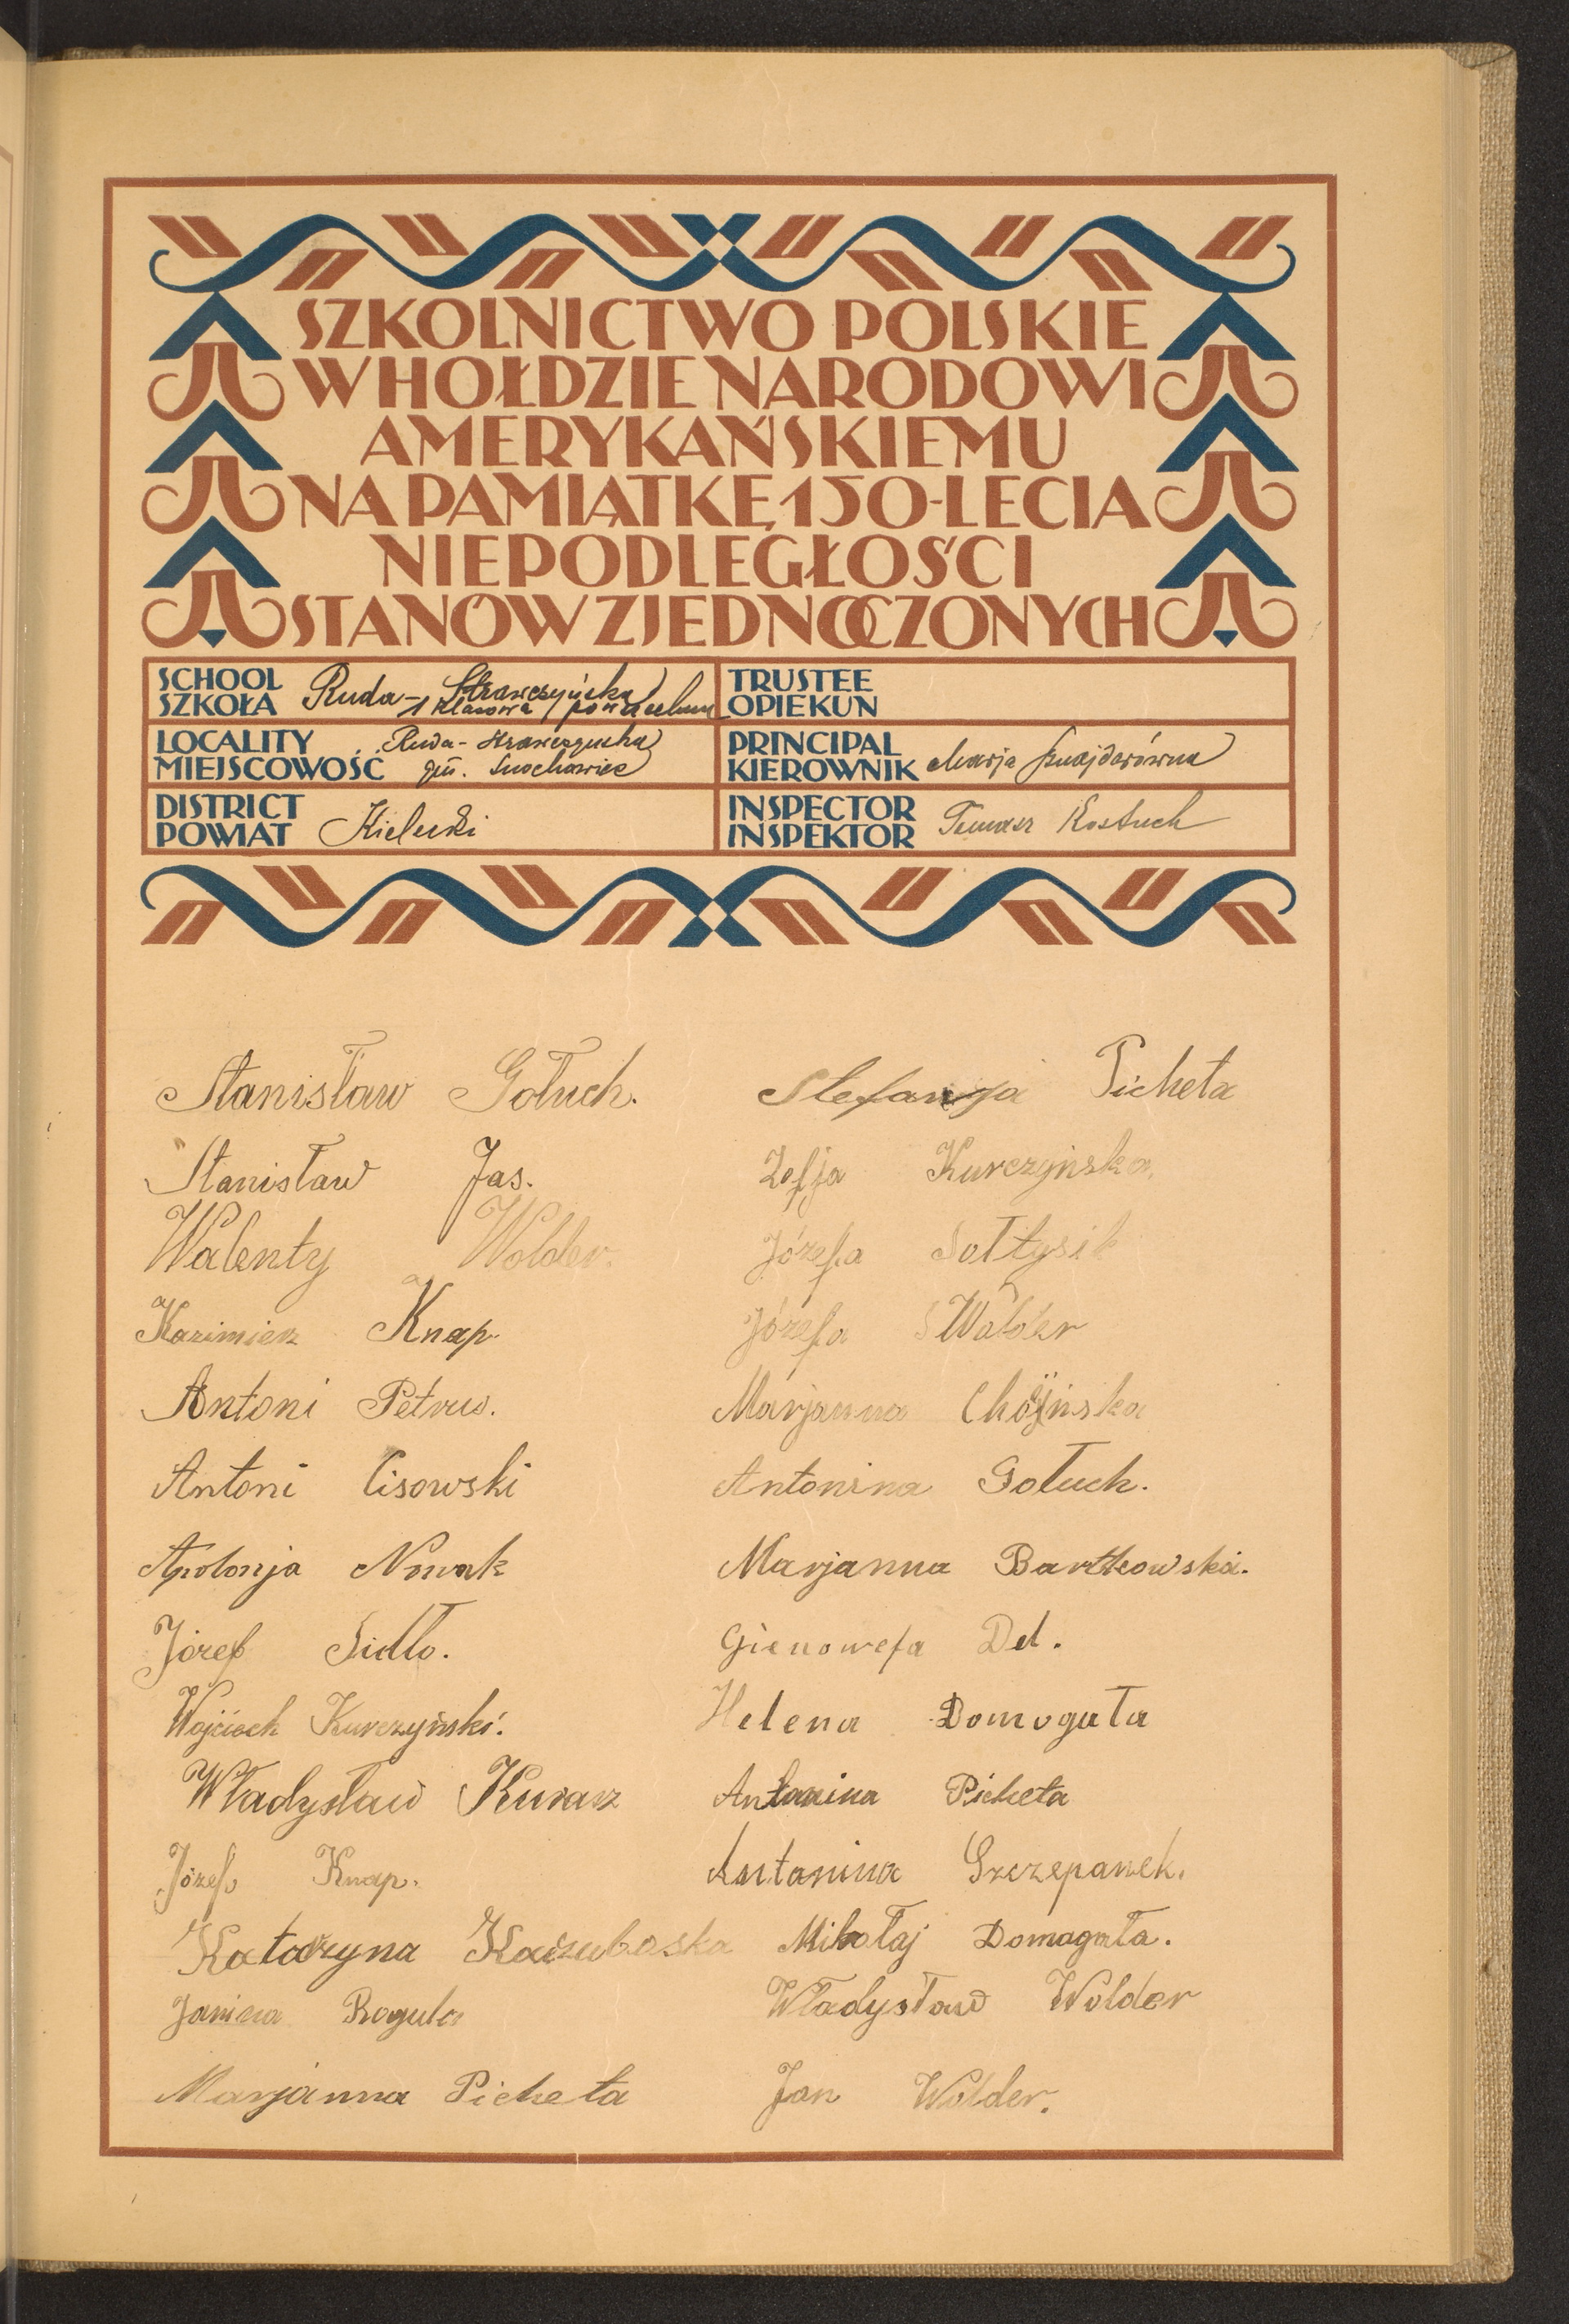 SZKOLNICTWO POLSKIE
W HOŁDZIE NARODOWI
AMERYKAŃSKIEMU
NA PAMIĄTKĘ 150-LECIA
NIEPODLEGŁOŚCI
STANÓW ZJEDNOCZONYCH
SCHOOL
SZKOŁA
Ruda - Strawczyńska
1 klasowa
TRUSTEE
OPIEKUN
LOCALITY
MIEJSCOWOŚĆ
Ruda - Strawczyńska
gm. Snochowice
PRINCIPAL
KIEROWNIK
Marja Sznajderówna
DISTRICT
POWIAT
Kielecki
INSPECTOR
INSPEKTOR
Tomasz Kostuch
Stanisław Gołuch.
Stanisław Jas.
Walenty Wolder.
Kazimierz Knap
Antoni Petrus.
Antoni Cisowski
Apolonja Nowak
Józef Sidło.
Wojciech Kurczyński.
Władysław Kurasz
Józef Knap.
Katarzyna
Janina Rogula
Marjanna Picheta
Stefanja Picheta
Zofja Kurczyńska.
Józefa Sołtysik
Józefa Wolder
Marjanna Chojińska
Antonina Gołuch.
Marjanna Bartkowska.
Gienowefa Del.
Helena Domogała
Antonina Picheta
Antanina Szczepanek.
Mikołaj Domagała.
Władysław Wolder
Jan Wolder.